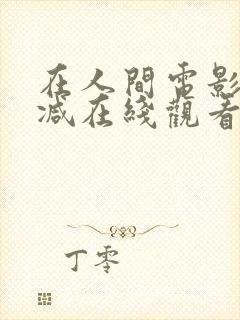 在人間電影
減在綫觀看
丁零